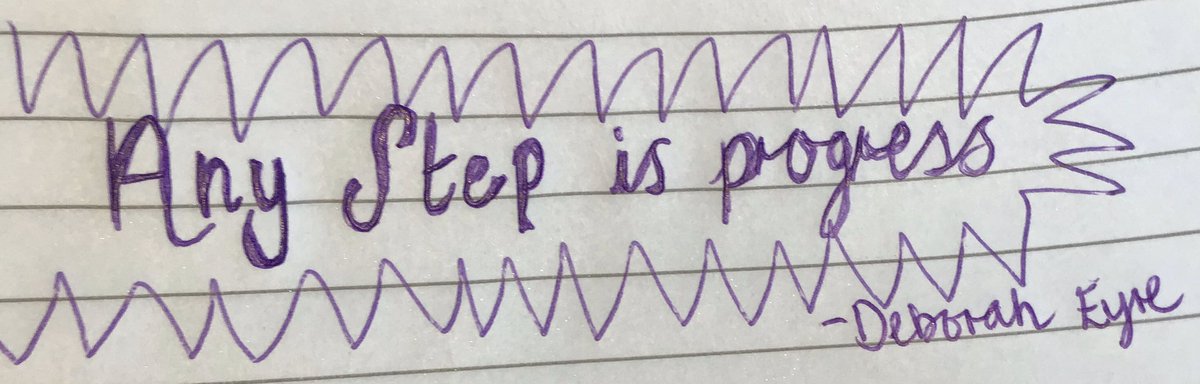 Any Step is progress
-Deborah Eyre